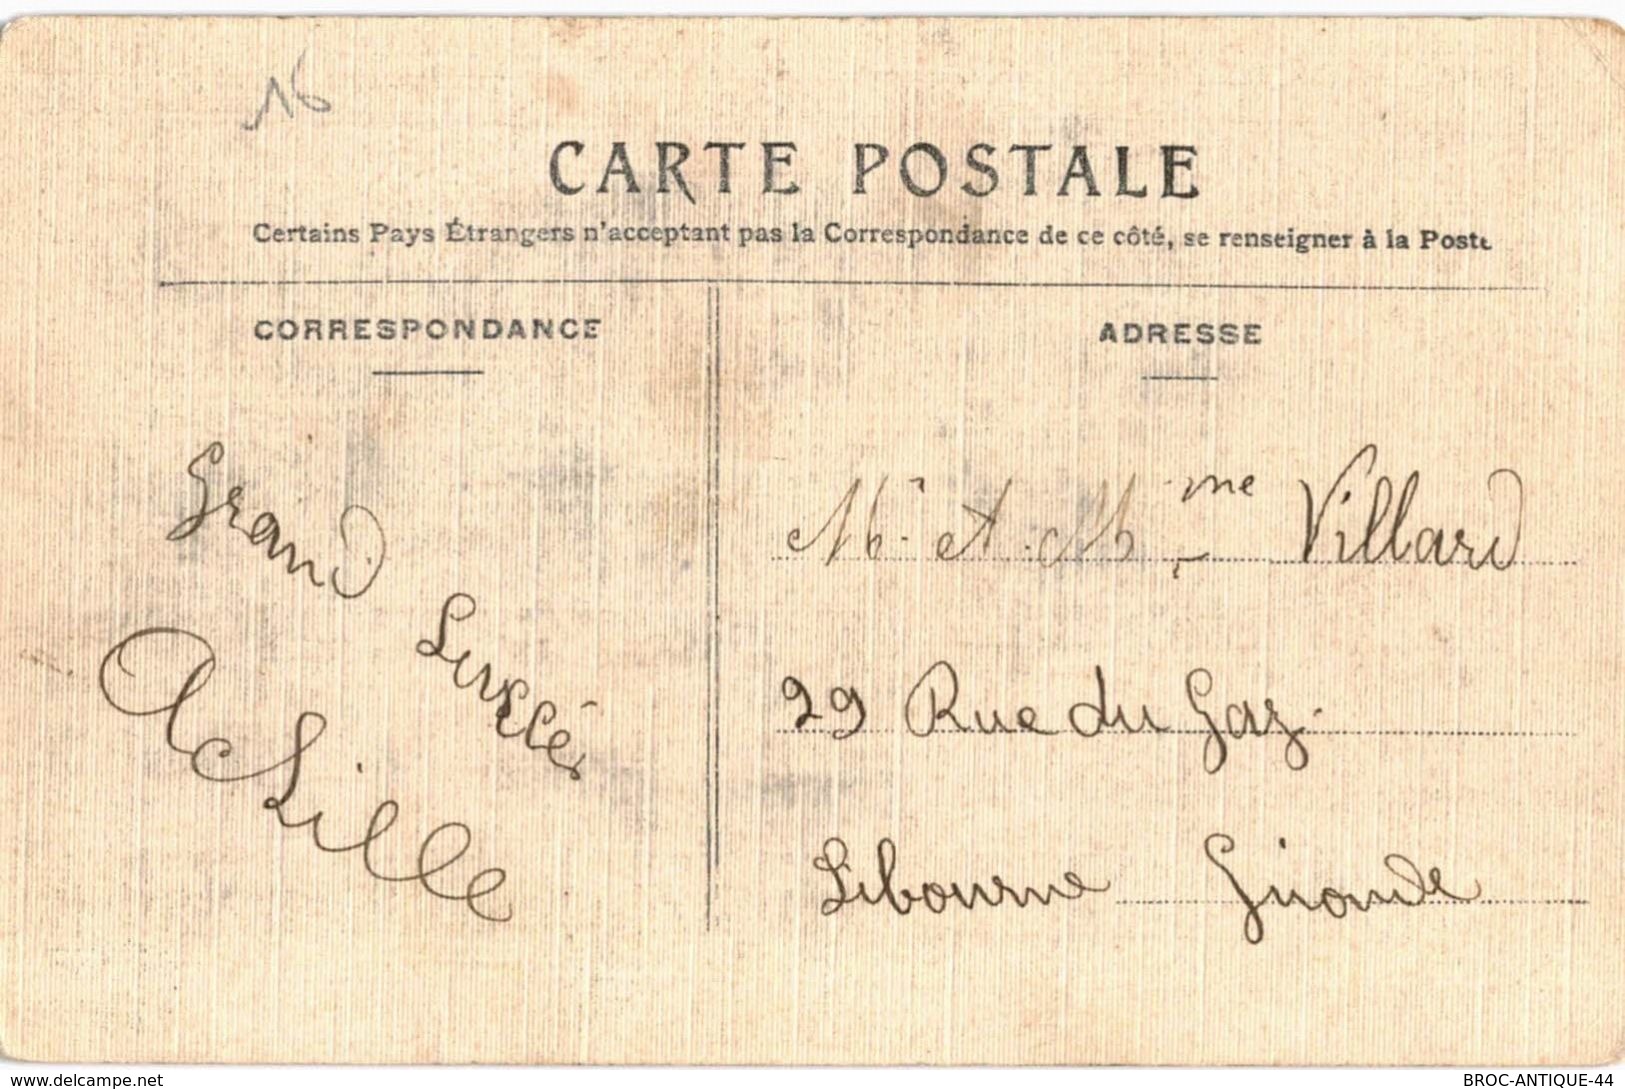 16
CARTE POSTALE
Certains Pays Étrangers n'acceptant pas la Correspondance de ce côté, se renseigner à la Poste
CORRESPONDANCE
Grand
Achille
ADRESSE
Mr. et Mme Villard
29 Rue du Gaz.
Libourne Gironde
www.delcampe.net
BROC-ANTIQUE-44